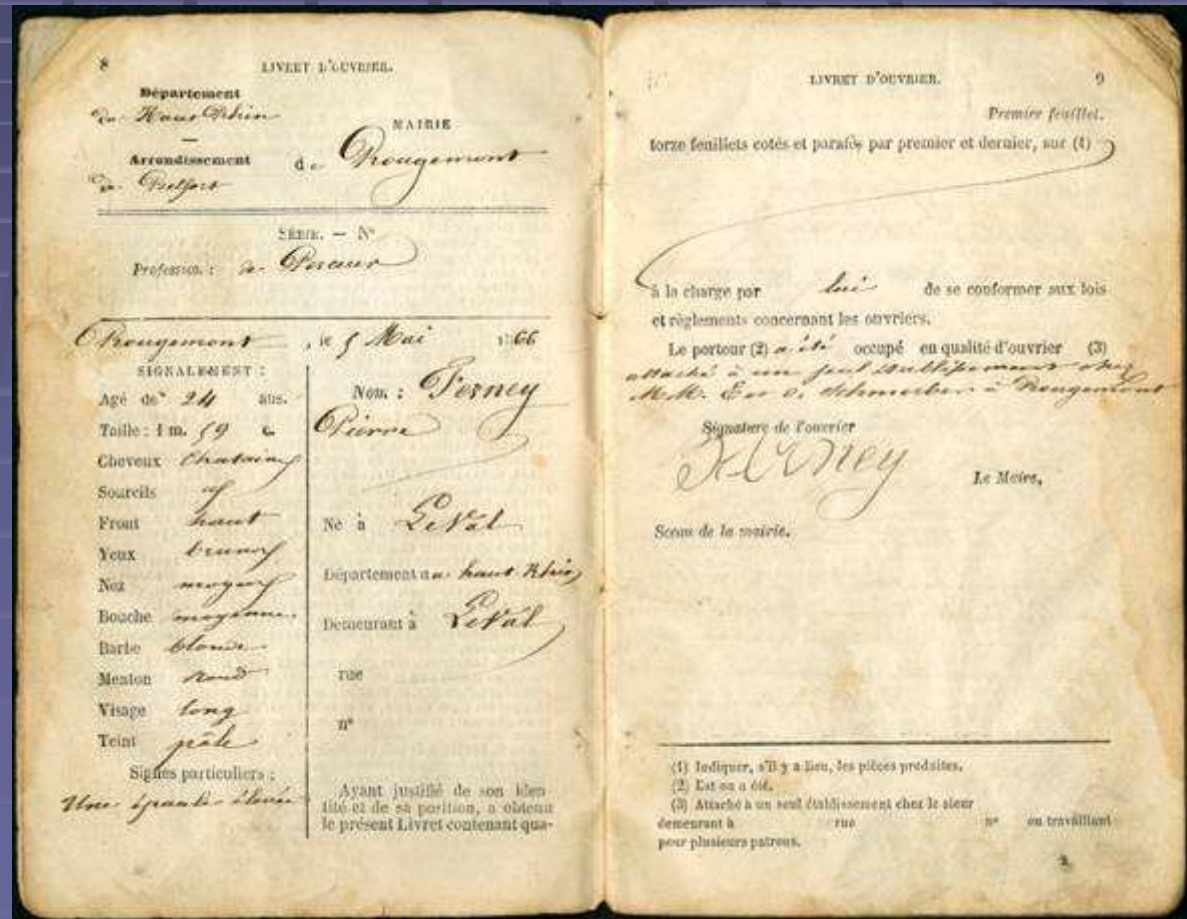 8
LIVRET D'OUVRIER.
Département
du Haut Rhin
MAIRIE
Arrondissement
de Rougemont
de Belfort
SÉRIE. — N°
Profession :
Rougemont, le 5 Mai 1866
SIGNALEMENT :
Agé de 24 ans.
Taille : 1 m. 59 c.
Cheveux chatains
Sourcils
Front haut
Yeux bruns
Nez moyen
Bouche moyenne
Barbe blonde
Menton rond
Visage long
Teint pâle
Signes particuliers :
Une épaule élevée
Nom : Ferney
Pierre
Né à LeVal
Département du haut Rhin
Demeurant à LeVal
rue
n°
Ayant justifié de son iden
tité et de sa position, a obtenu
le présent Livret contenant qua-
LIVRET D'OUVRIER.
9
Premier feuillet.
torze feuillets cotés et parafés par premier et dernier, sur (1)
à la charge par lui de se conformer aux lois
et règlements concernant les ouvriers.
Le porteur (2) a été occupé en qualité d'ouvrier (3)
attaché à un seul établissement chez
M.M. Schmerber à Rougemont
Signature de l'ouvrier
Ferney
Le Maire,
Sceau de la mairie.
(1) Indiquer, s'il y a lieu, les pièces produites.
(2) Est ou a été.
(3) Attaché à un seul établissement chez le sieur
demeurant à rue n° ou travaillant
pour plusieurs patrons.